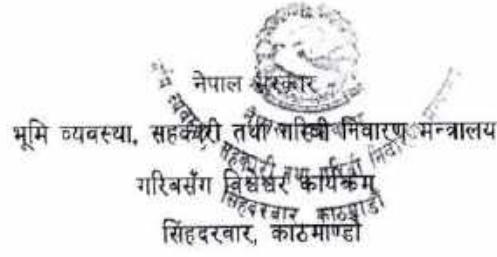 नेपाल सरकार
भूमि व्यवस्था, सहकारी तथा गरिबी निवारण मन्त्रालय
गरिबसँग विश्वेश्वर कार्यक्रम
सिंहदरबार, काठमाण्डौ
सिंहदरबार, काठमाडौं